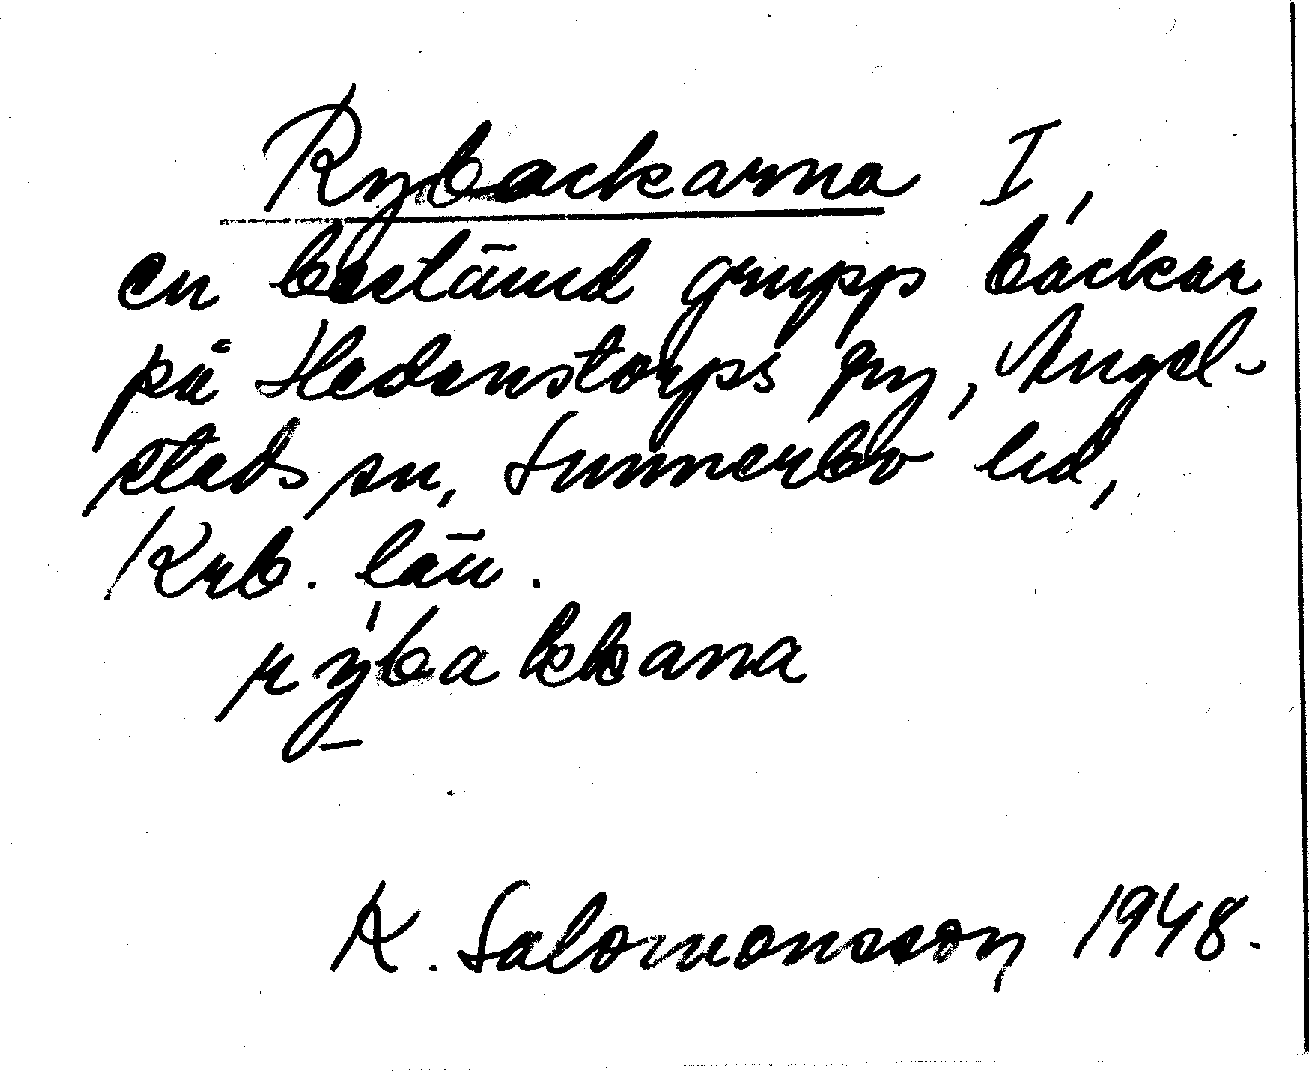 Rybackarna I,
en bestämd grupp backar
på Hedenstorps gry, Angel-
stads sn, Sunnerbo hd,
Krb. län.
rýbakkana
K. Salomonsson 1948.